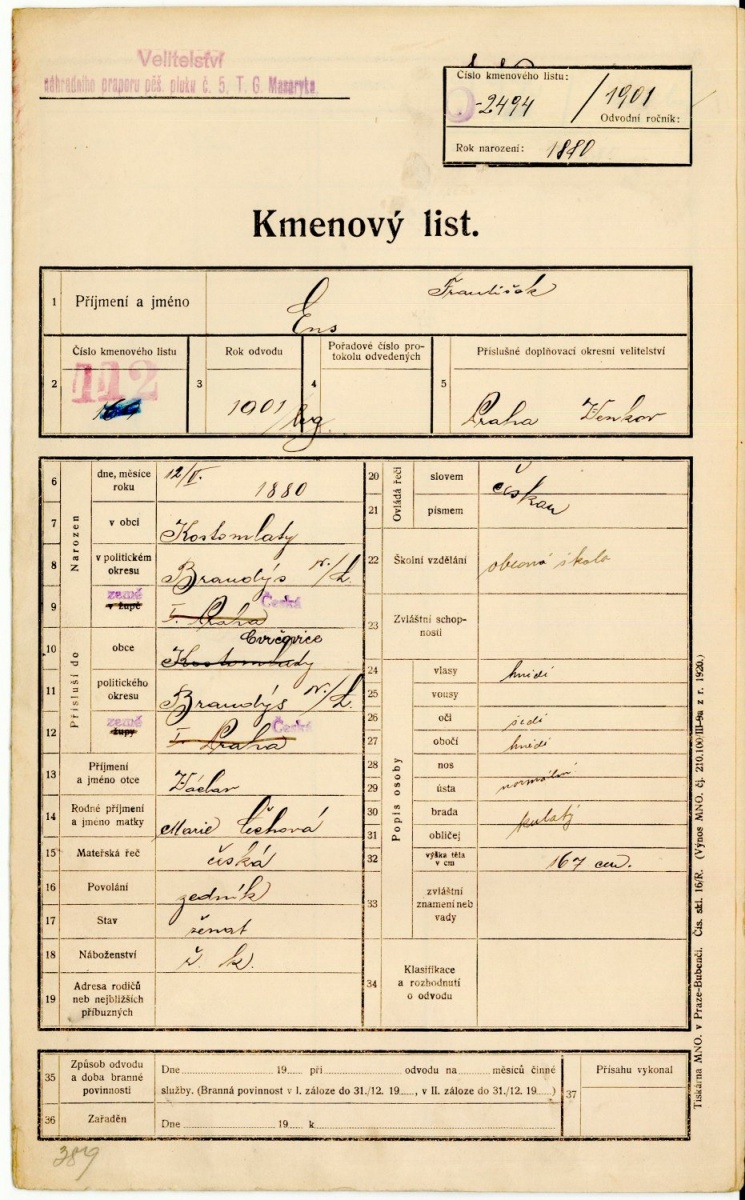 Velitelství
náhradního praporu pěš. pluku č. 5, T. G. Masaryka.
Číslo kmenového listu:
2494 / 1901
Odvodní ročník:
Rok narození: 1880
Kmenový list.
1 Příjmení a jméno Ens František
2 Číslo kmenového listu 112
3 Rok odvodu 1901
4 Pořadové číslo protokolu odvedených
5 Příslušné doplňovací okresní velitelství Praha Venkov
Narozen
6 dne, měsíce roku 12/V. 1880
7 v obci Kostomlaty
8 v politickém okresu Brandýs n./L.
9 v župě země I. Praha Česká
Přísluší do
10 obce Kostomlaty
11 politického okresu Brandýs n./L.
12 župy země I. Praha Česká
13 Příjmení a jméno otce Václav
14 Rodné příjmení a jméno matky Marie Čechová
15 Mateřská řeč česká
16 Povolání zedník
17 Stav ženat
18 Náboženství ř. k.
19 Adresa rodičů neb nejbližších příbuzných
Ovládá řeči
20 slovem českou
21 písmem
22 Školní vzdělání obecná škola
23 Zvláštní schopnosti
Popis osoby
24 vlasy hnědé
25 vousy
26 oči šedé
27 obočí hnědé
28 nos
29 ústa normální
30 brada
31 obličej kulatý
32 výška těla v cm 167 cm.
33 zvláštní znamení neb vady
34 Klasifikace a rozhodnutí o odvodu
35 Způsob odvodu a doba branné povinnosti
Dne 19 při odvodu na měsíců činné
služby. (Branná povinnost v I. záloze do 31./12. 19 , v II. záloze do 31./12. 19 )
36 Zařaděn
Dne 19 k
37 Přísahu vykonal
Tiskárna MNO. v Praze-Bubenči. Čís. skl. 16/R. (Výnos MNO. čj. 210.100/III-9a z r. 1920.)
389